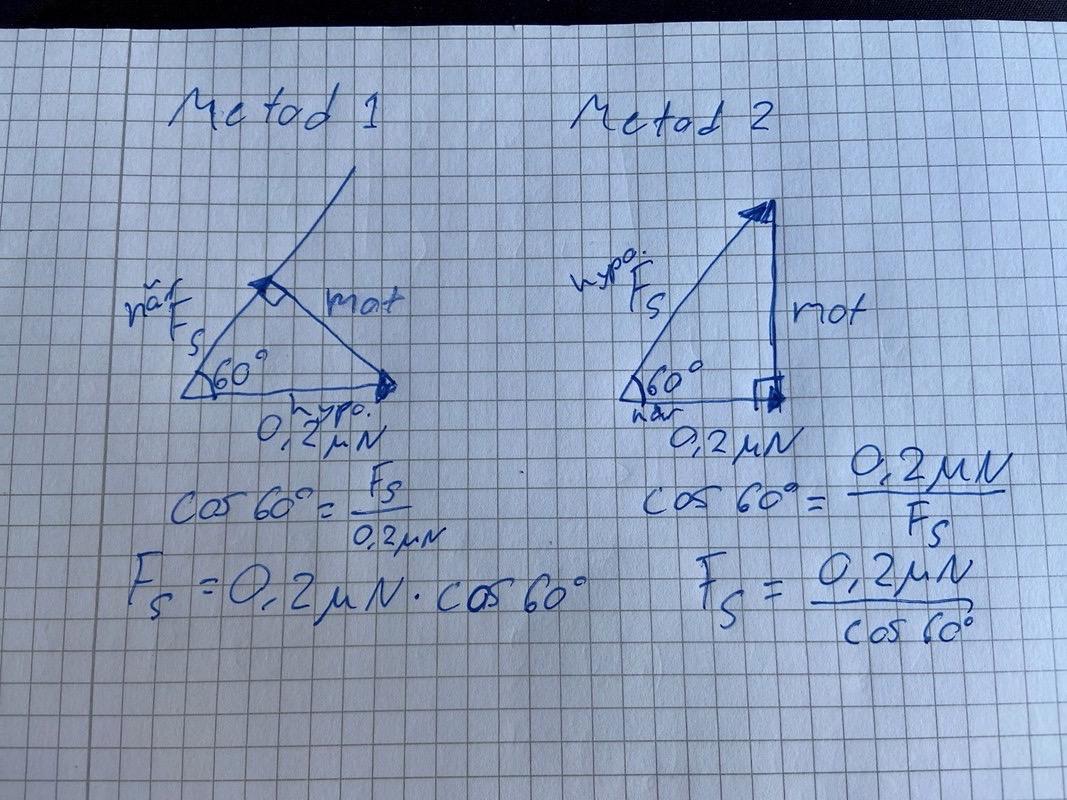 Metod 1
när
F_s
mot
60°
hypo.
0,2 μN
cos 60° = F_s / 0,2 μN
F_s = 0,2 μN · cos 60°
Metod 2
hypo.
F_s
mot
60°
när
0,2 μN
cos 60° = 0,2 μN / F_s
F_s = 0,2 μN / cos 60°